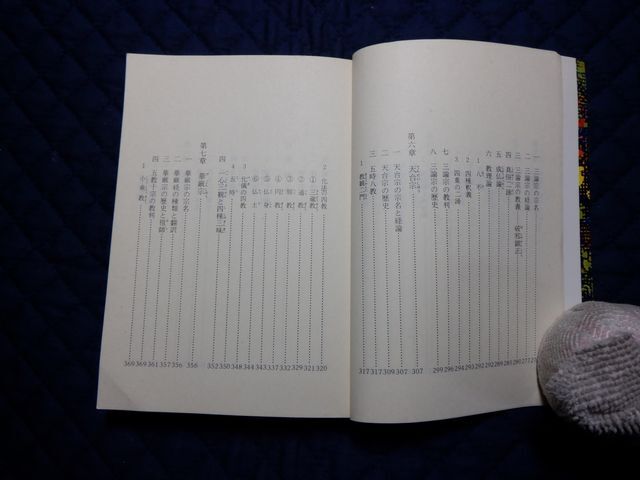 一 三論宗の宗名
二 三論宗の経論
三 三論宗の教義
四 真俗二諦
五 成仏論
六 教理論
1 八不
2 四種釈義 292
3 四重の二諦 294
七 三論宗の教判 296
八 三論宗の歴史 299
第六章 天台宗 307
一 天台宗の宗名と経論 307
二 天台宗の歴史 309
三 五時八教 317
1 教観二門 317
2 化法の四教 320
① 三蔵教 321
② 通教 329
③ 別教 332
④ 円教 337
⑤ 仏身 343
⑥ 仏土 344
3 化儀の四教 348
4 五時 350
四 一心三観と四種三昧 352
第七章 華厳宗 356
一 華厳宗の宗名 356
二 華厳経の種類と翻訳 357
三 華厳宗の歴史と祖師 361
四 五教十宗の教判 369
1 小乗教 369